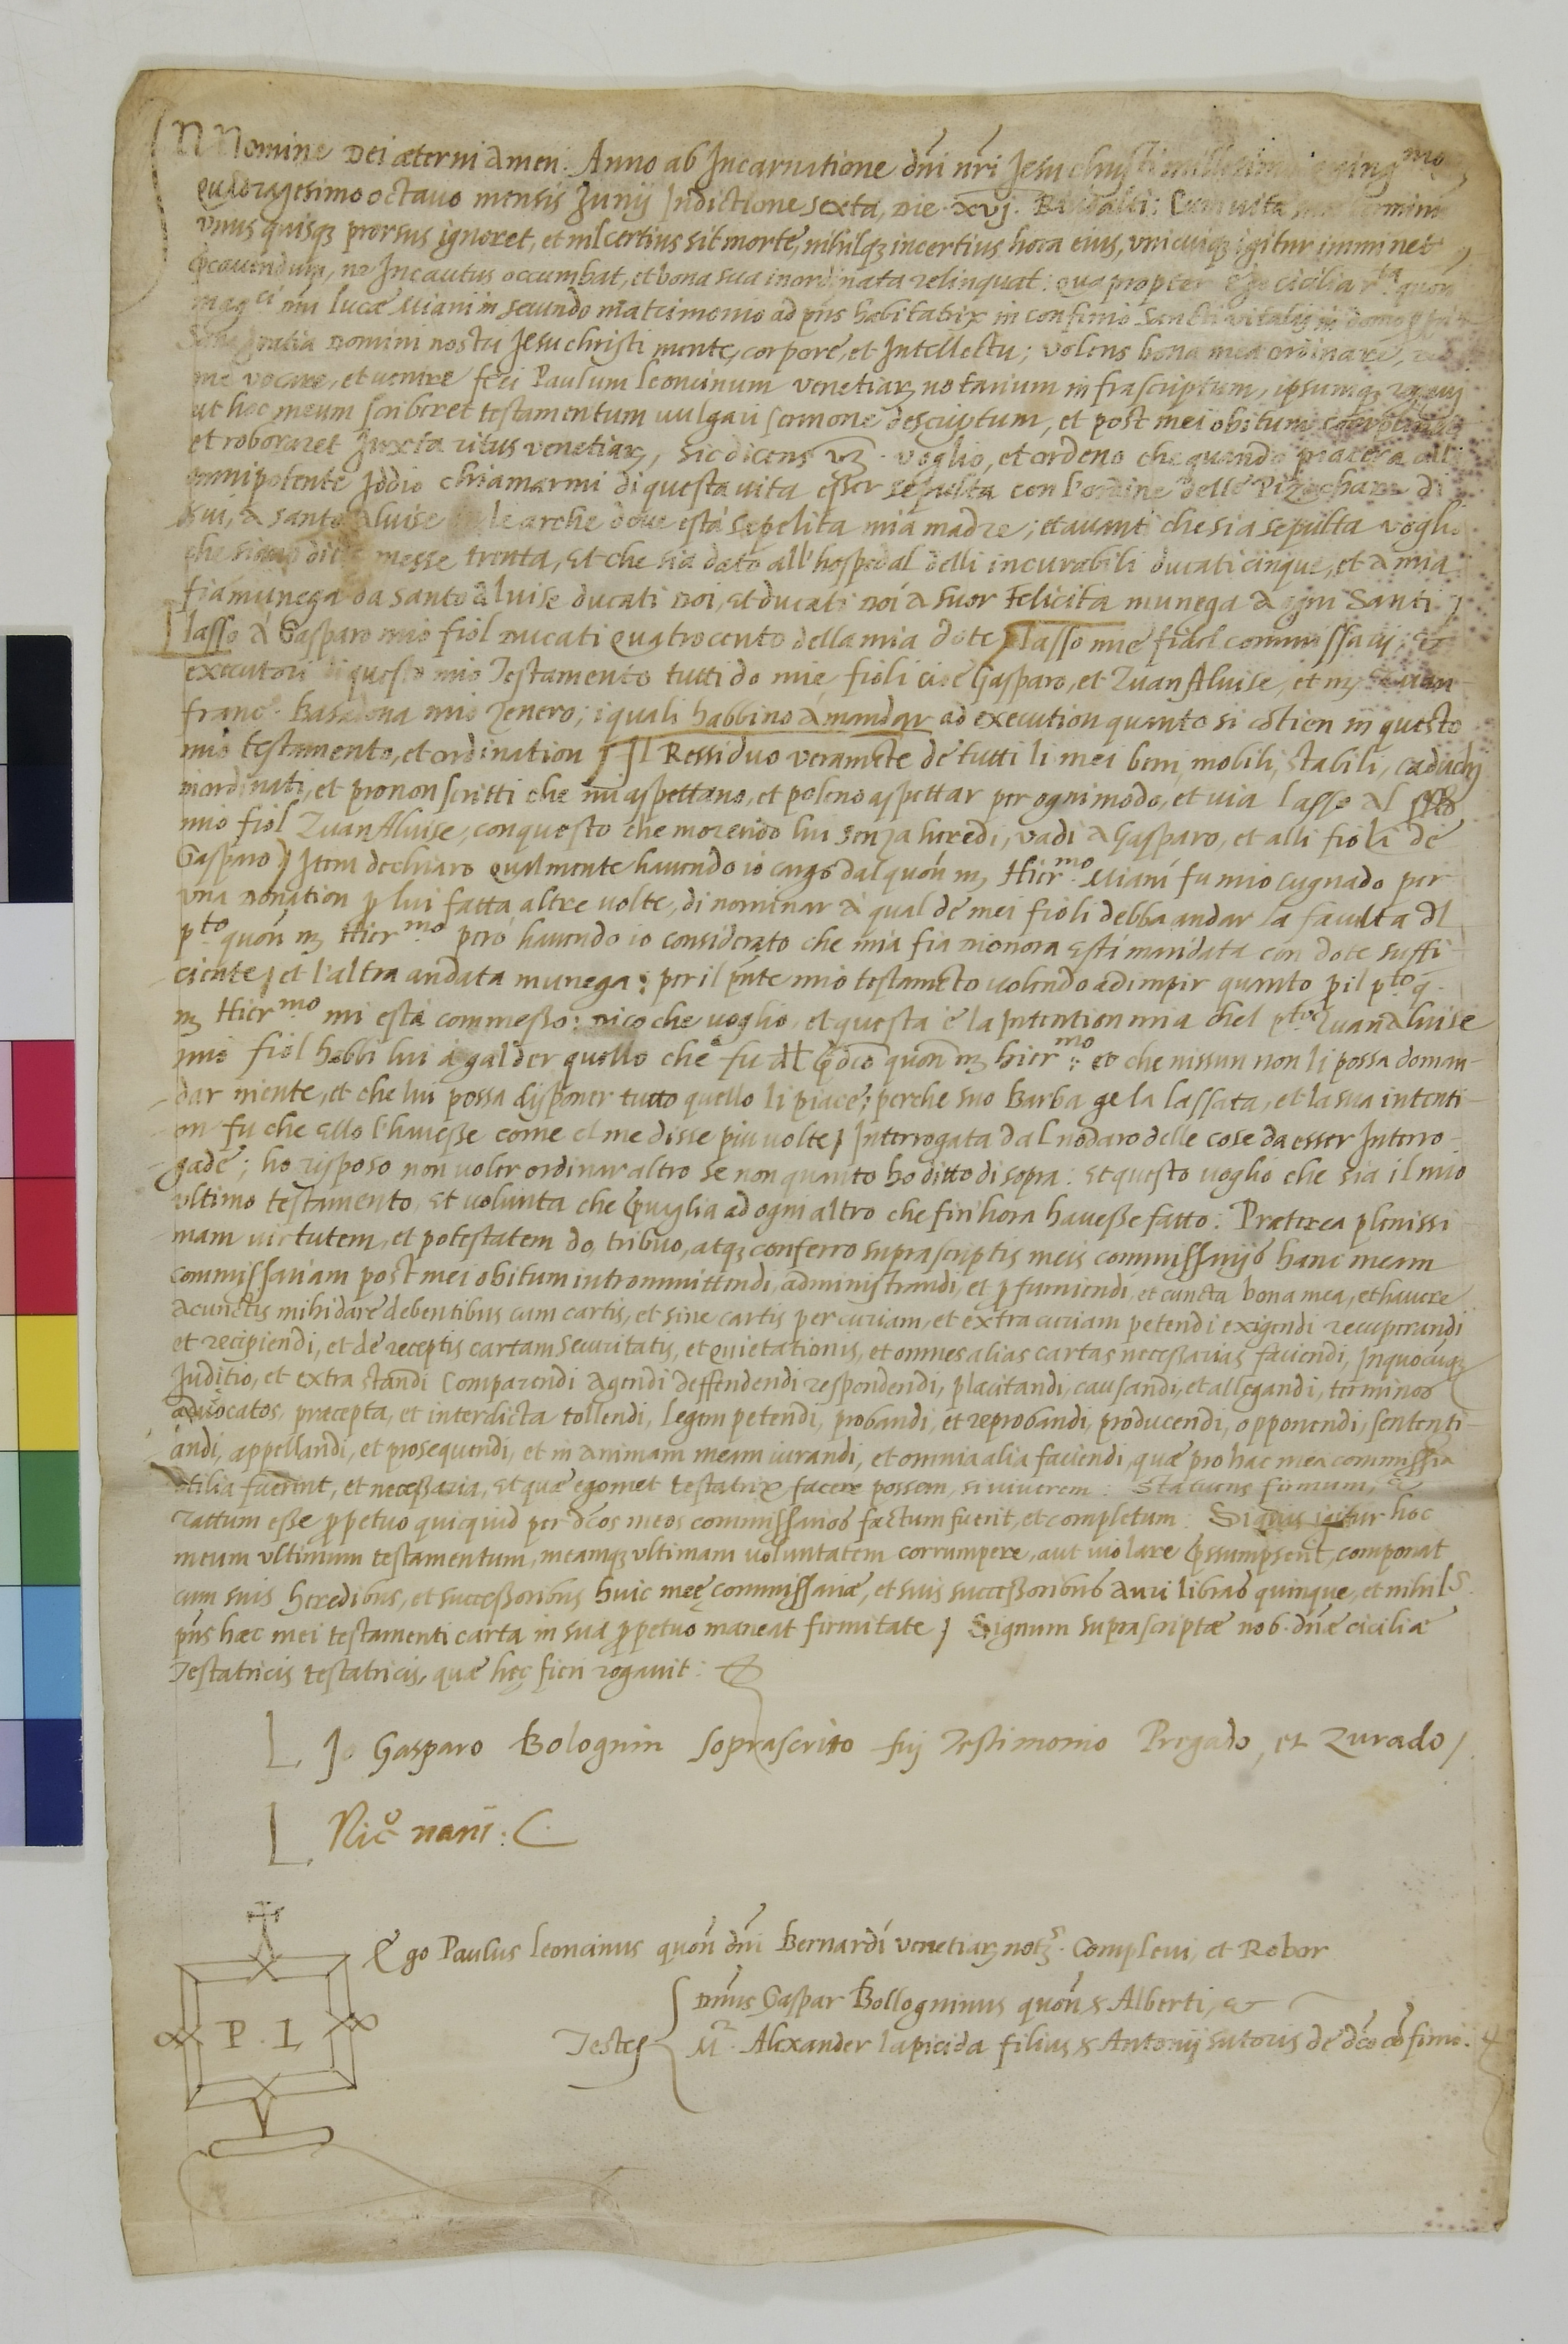 IN Nomine Dei æterni Amen. Anno ab Incarnatione dñi nr̃i Jesu christi millesimo quing.mo
quadragesimo octavo mensis Junij Indictione sexta, Die .xvj. Rivoalti: Cum vitæ suæ terminũ
vnus quisqȝ prorsus ignoret, et nil certius sit morte, nihilqȝ incertius hora eius, vnicuiqȝ igitur imminet
p̃cavendum, ne Incautus occumbat, et bona sua inordinata relinquat: quapropter Ego cicilia r.ta quon
mag.ci mĩ lucæ Miani in secundo matrimonio ad p̃ns habitatrix in confinio Sancti vitalis in domo
Sana gratia Domini nostri Jesu christi mente, corpore, et Intellectu; volens bona mea ordinare, ad
me vocare, et venire feci Paulum leoncinum venetiarȝ notarium infrascriptum, ipsumqȝ rogavi
ut hoc meum scriberet testamentum vulgari sermone descriptum, et post mei obitum compleret
et roboraret Juxta ritus venetiarȝ, sic dicens vȝ. voglio, et ordeno che quando piacera all
omnipotente Iddio chiamarmi di questa vita esser sepulta con l'ordine delle Pizochare di
sui, a santo Aluise le arche dove està sepelita mia madre; et avanti che sia sepulta voglio
che siano ditte messe trenta, Et che sia dato all'hospedal delli incurabili ducati cinque, et a mia
fia munega da santo Aluise ducati doi, Et ducati doi a suor Felicita munega a ogni Santi /
lasso a Gasparo mio fiol ducati quatrocento della mia dote / lasso mie fidel commissarij, et
executori di questo mio Testamento tutti do mie fioli cioè Gasparo, et Zuan Aluise, et mȝ
franc.o Basadona mio Zenero; i quali habbino à mandar ad execution quanto si cõtien in questo
mio testamento, et ordination / Il Ressiduo veramẽte de tutti li mei beni mobili, stabili, caduchi
inordinati, et pro non scritti che mi aspettano, et poleno aspettar per ogni modo, et via lasso al
mio fiol Zuan Aluise, con questo che morendo lui senza heredi, vadi a Gasparo, et alli fioli de
Gasparo / Item dechiaro qualmente havendo io cargo dal quon mȝ Hier.mo Miani fu mio cugnado per
vna donation p lui fatta altre volte, di nominar à qual de mei fioli debba andar la facultà dl
p.to quon mȝ Hier.mo però havendo io considerato che mia fia Dionora està maridata con dote suffi-
ciente / et l'altra andata munega: per il p̃nte mio testamẽto volendo adimpir quanto p il p.to q.
mȝ Hier.mo mi està commesso: Dico che voglio, et questa è la Intention mia chel p.to Zuan Aluise
mio fiol habbi lui à galder quello che fu dl p̃dco quon mȝ hier.mo: et che nissun non li possa doman-
dar niente, et che lui possa disponer tutto quello li piace; perche suo Barba ge la lassata, et la sua intenti-
on fu che ello l'havesse come el me disse piu volte / Interrogata dal nodaro delle cose da esser Interro-
gade; ho risposo non voler ordinar altro se non quanto ho ditto di sopra: Et questo voglio che sia il mio
ultimo testamento, Et volunta che p̃vaglia ad ogni altro che fin hora havesse fatto: Præterea plenissi
mam virtutem, et potestatem do, tribuo, atqȝ conferro suprascriptis meis commissarijs hanc meam
commissariam post mei obitum intrommittendi, administrandi, et p furniendi, et cuncta bona mea, et havere
a cunctis mihi dare debentibus cum cartis, et sine cartis per curiam, et extra curiam petendi exigendi recuperandi
et recipiendi, et de receptis cartam securitatis, et quietationis, et omnes alias cartas necessarias faciendi, In quocũqȝ
Juditio, et extra standi Comparendi Agendi deffendendi respondendi, placitandi, causandi, et allegandi, terminos
advocatos, præcepta, et interdicta tollendi, legem petendi, probandi, et reprobandi, producendi, opponendi, sententi-
andi, appellandi, et prosequendi, et in animam meam iurandi, et omnia alia faciendi, quæ pro hac mea commissia
utilia fuerint, et necessaria, Et quæ egomet testatrix facere possem, si viverem: Statuens firmum, et
rattum esse ppetuo quicquid per dcõs meos commissarios factum fuerit, et completum: Siquis igitur hoc
meum vltimum testamentum, meamqȝ vltimam voluntatem corrumpere, aut violare p̃ssumpserit, componat
cum suis heredibus, et successoribus huic meę commissariæ, et suis successoribus auri libras quinque, et nihils.
p̃ns hæc mei testamenti carta in sua ppetuo maneat firmitate / Signum suprascriptæ nob. dñæ ciciliæ
Testatricis testatricis, quæ hęc fieri rogavit:
Jo Gasparo Bolognin soprascrito fuj Testimonio Pregado, et Zurado /
Nic.o nani: C
Ego Paulus leoncinus quon dñi Bernardi venetiarȝ not.s Complevi, et Robor
P. L
Testes
Dnus Gaspar Bollogninus quon s Alberti, et
M.r Alexander lapicida filius s Antonij sutoris de dco cõfinio.